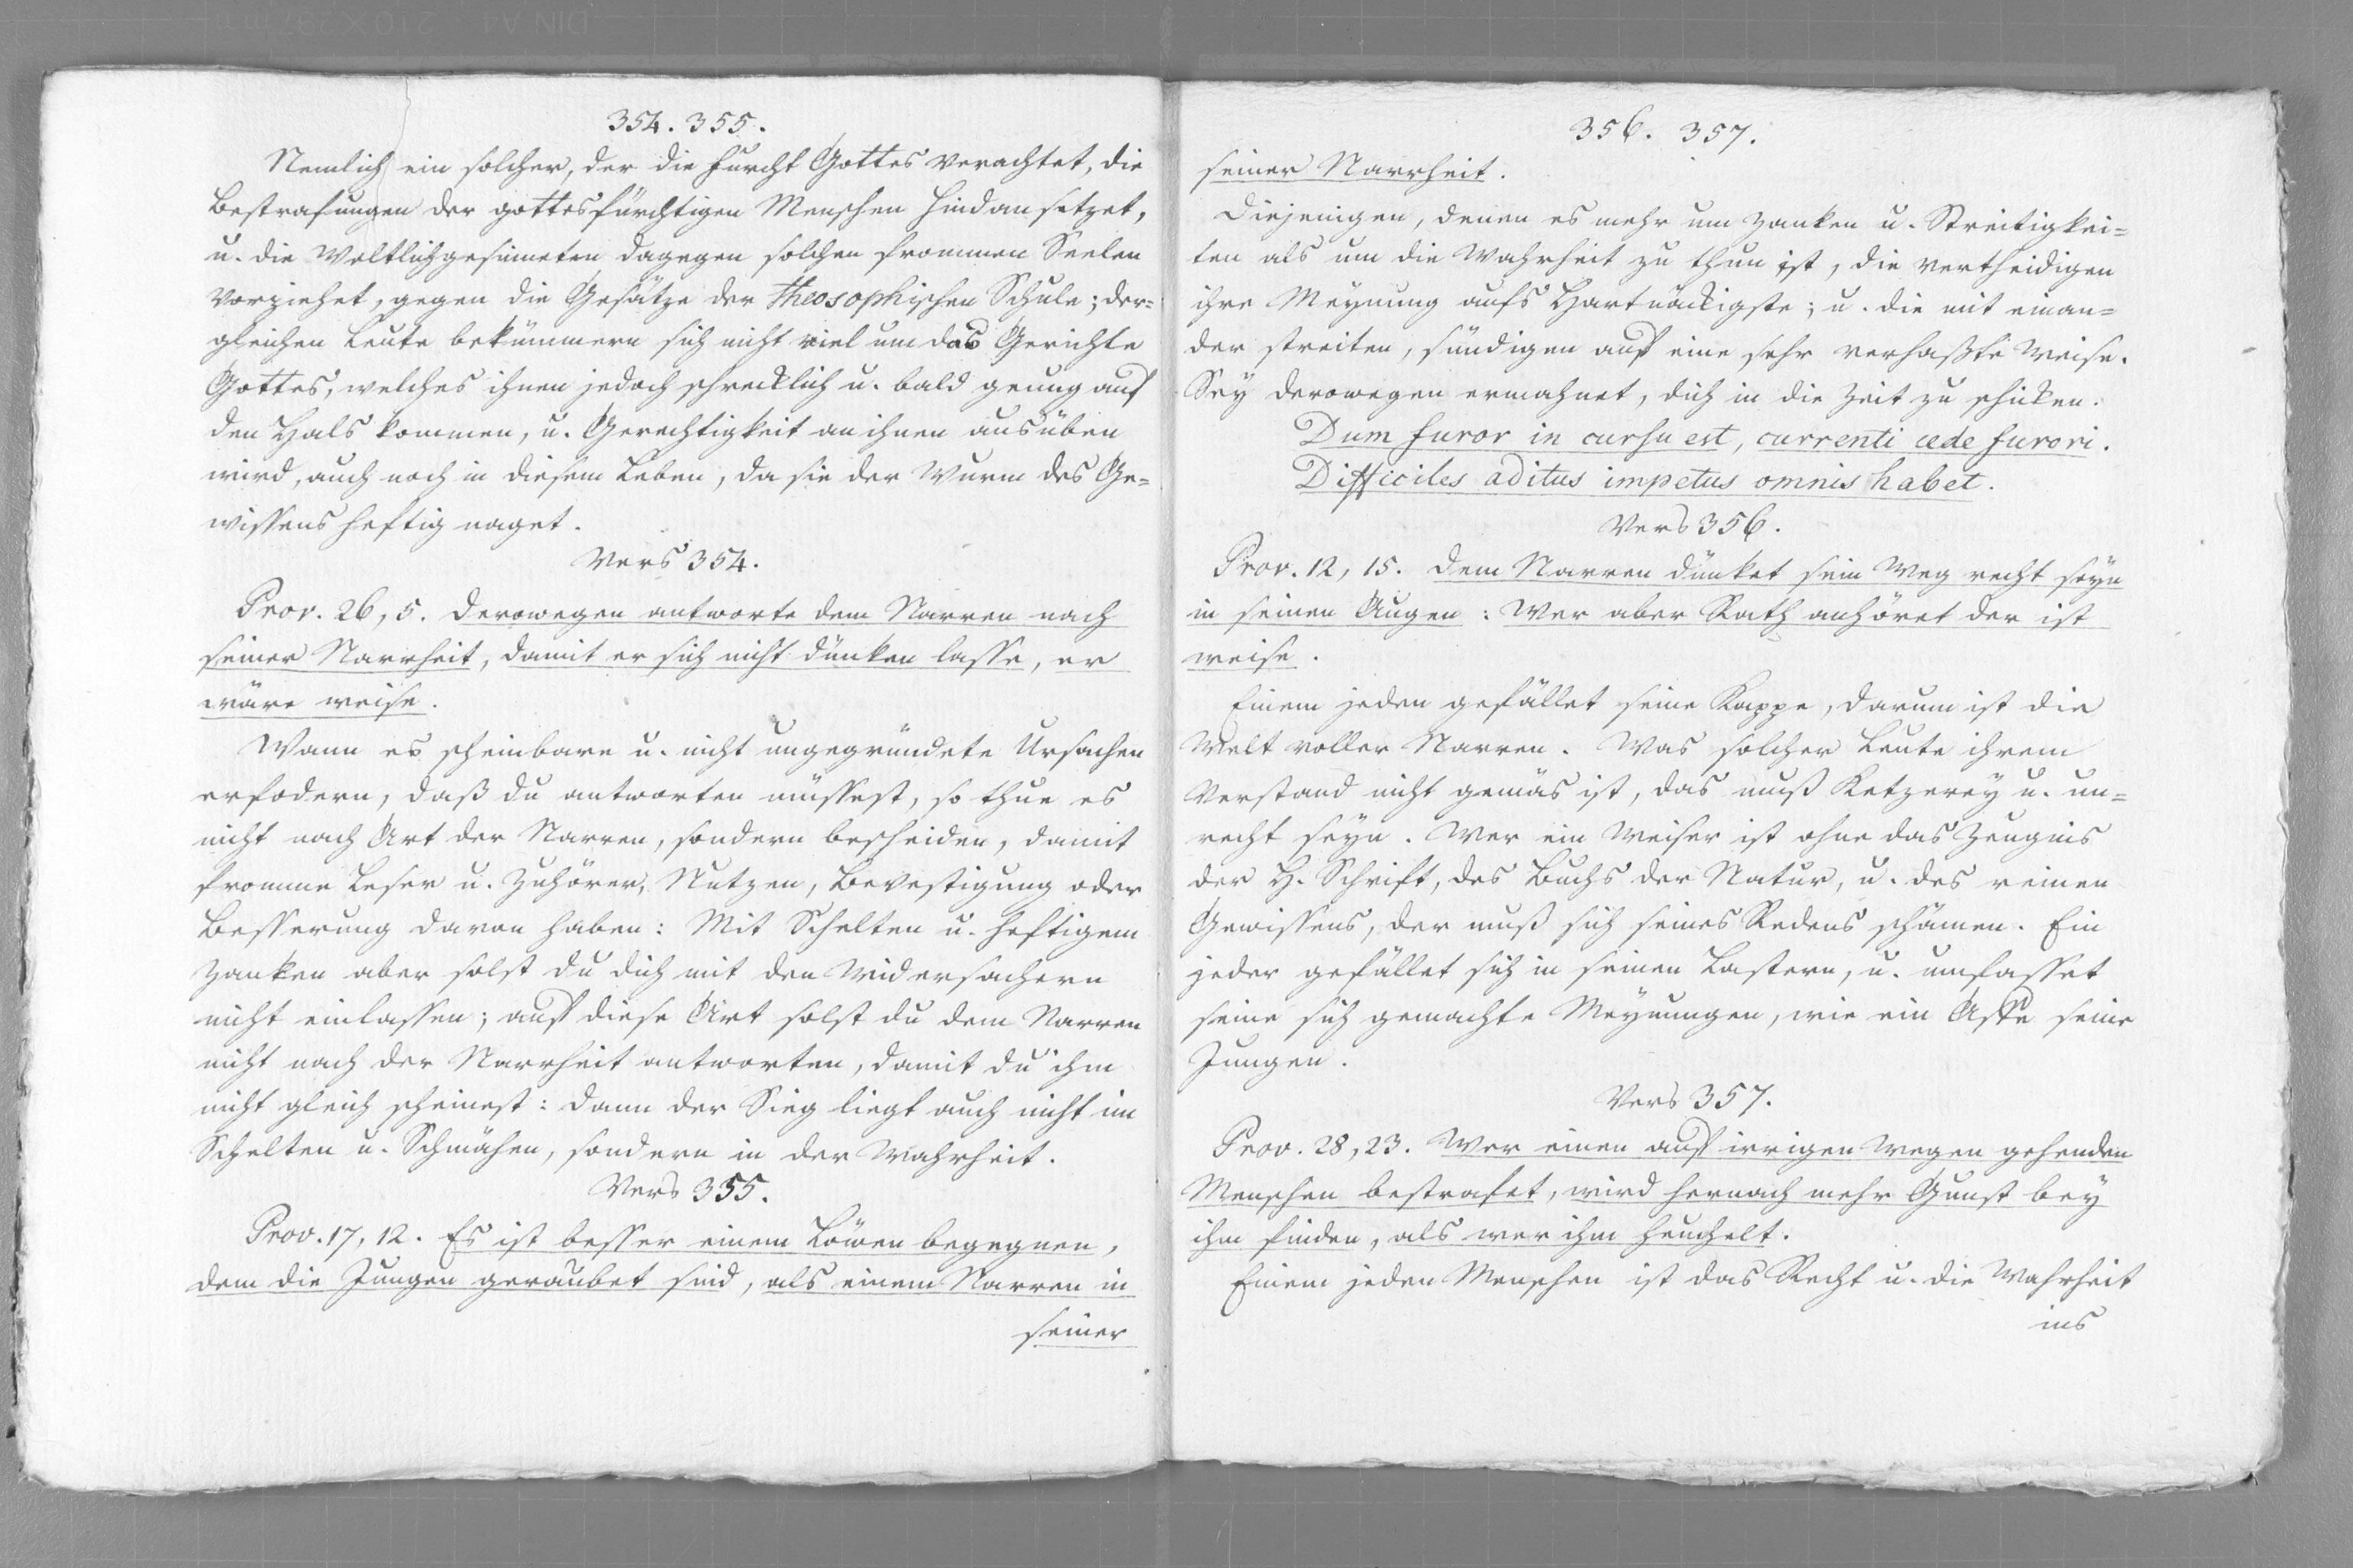 354. 355.
Nemlich ein solcher, der die Furcht Gottes verachtet, die
Bestrafungen der gottesfürchtigen Menschen hindan setzet,
u. die Weltlichgesinneten dagegen solchen frommen Seelen
vorziehet, gegen die Gesätze der theosophischen Schule; der=
gleichen Leute bekümmern sich nicht viel um das Gerichte
Gottes, welches ihnen jedoch schrecklich u. bald genug auf
den Hals kommen, u. Gerechtigkeit an ihnen ausüben
wird, auch noch in diesem Leben, da sie der Wurm des Ge=
wissens heftig naget.
Vers 354.
Prov. 26, 5. Derowegen antworte dem Narren nach
seiner Narrheit, damit er sich nicht dünken lasse, er
wäre weise.
Wann es scheinbare u. nicht ungegründete Ursachen
erfodern, daß du antworten müssest, so thue es
nicht nach Art der Narren, sondern bescheiden, damit
fromme Leser u. Zuhörer, Nutzen, Bevestigung oder
Besserung davon haben: Mit Schelten u. heftigem
Zanken aber solst du dich mit den Widersachern
nicht einlassen; auf diese Art solst du dem Narren
nicht nach der Narrheit antworten, damit du ihm
nicht gleich scheinest: dann der Sieg liegt auch nicht im
Schelten u. Schmähen, sondern in der Wahrheit.
Vers 355.
Prov. 17, 12. Es ist besser einem Löwen begegnen,
dem die Jungen geraubet sind, als einem Narren in
seiner
356. 357.
seiner Narrheit.
Diejenigen, denen es mehr um Zanken u. Streitigkei=
ten als um die Wahrheit zu thun ist, die vertheidigen
ihre Meynung aufs Hartnäckigste; u. die mit einan=
der streiten, sündigen auf eine sehr verhaßte Weise.
Sey derowegen ermahnet, dich in die Zeit zu schicken.
Dum furor in cursu est, currenti cede furori.
Difficiles aditus impetus omnis habet.
Vers 356.
Prov. 12, 15. Dem Narren dünket sein Weg recht seyn
in seinen Augen: Wer aber Rath anhöret der ist
weise.
Einem jeden gefället seine Kappe, darum ist die
Welt voller Narren. Was solcher Leute ihrem
Verstand nicht gemäs ist, das muß Ketzerey u. un=
recht seyn. Wer ein Weiser ist ohne das Zeugnis
der H. Schrift, des Buchs der Natur, u. des reinen
Gewissens, der muß sich seines Redens schämen. Ein
jeder gefället sich in seinen Lastern, u. umfasset
seine sich gemachte Meynungen, wie ein Affe seine
Jungen.
Vers 357.
Prov. 28, 23. Wer einen auf irrigen Wegen gehenden
Menschen bestrafet, wird hernach mehr Gunst bey
ihm finden, als wer ihm heuchelt.
Einem jeden Menschen ist das Recht u. die Wahrheit
ins